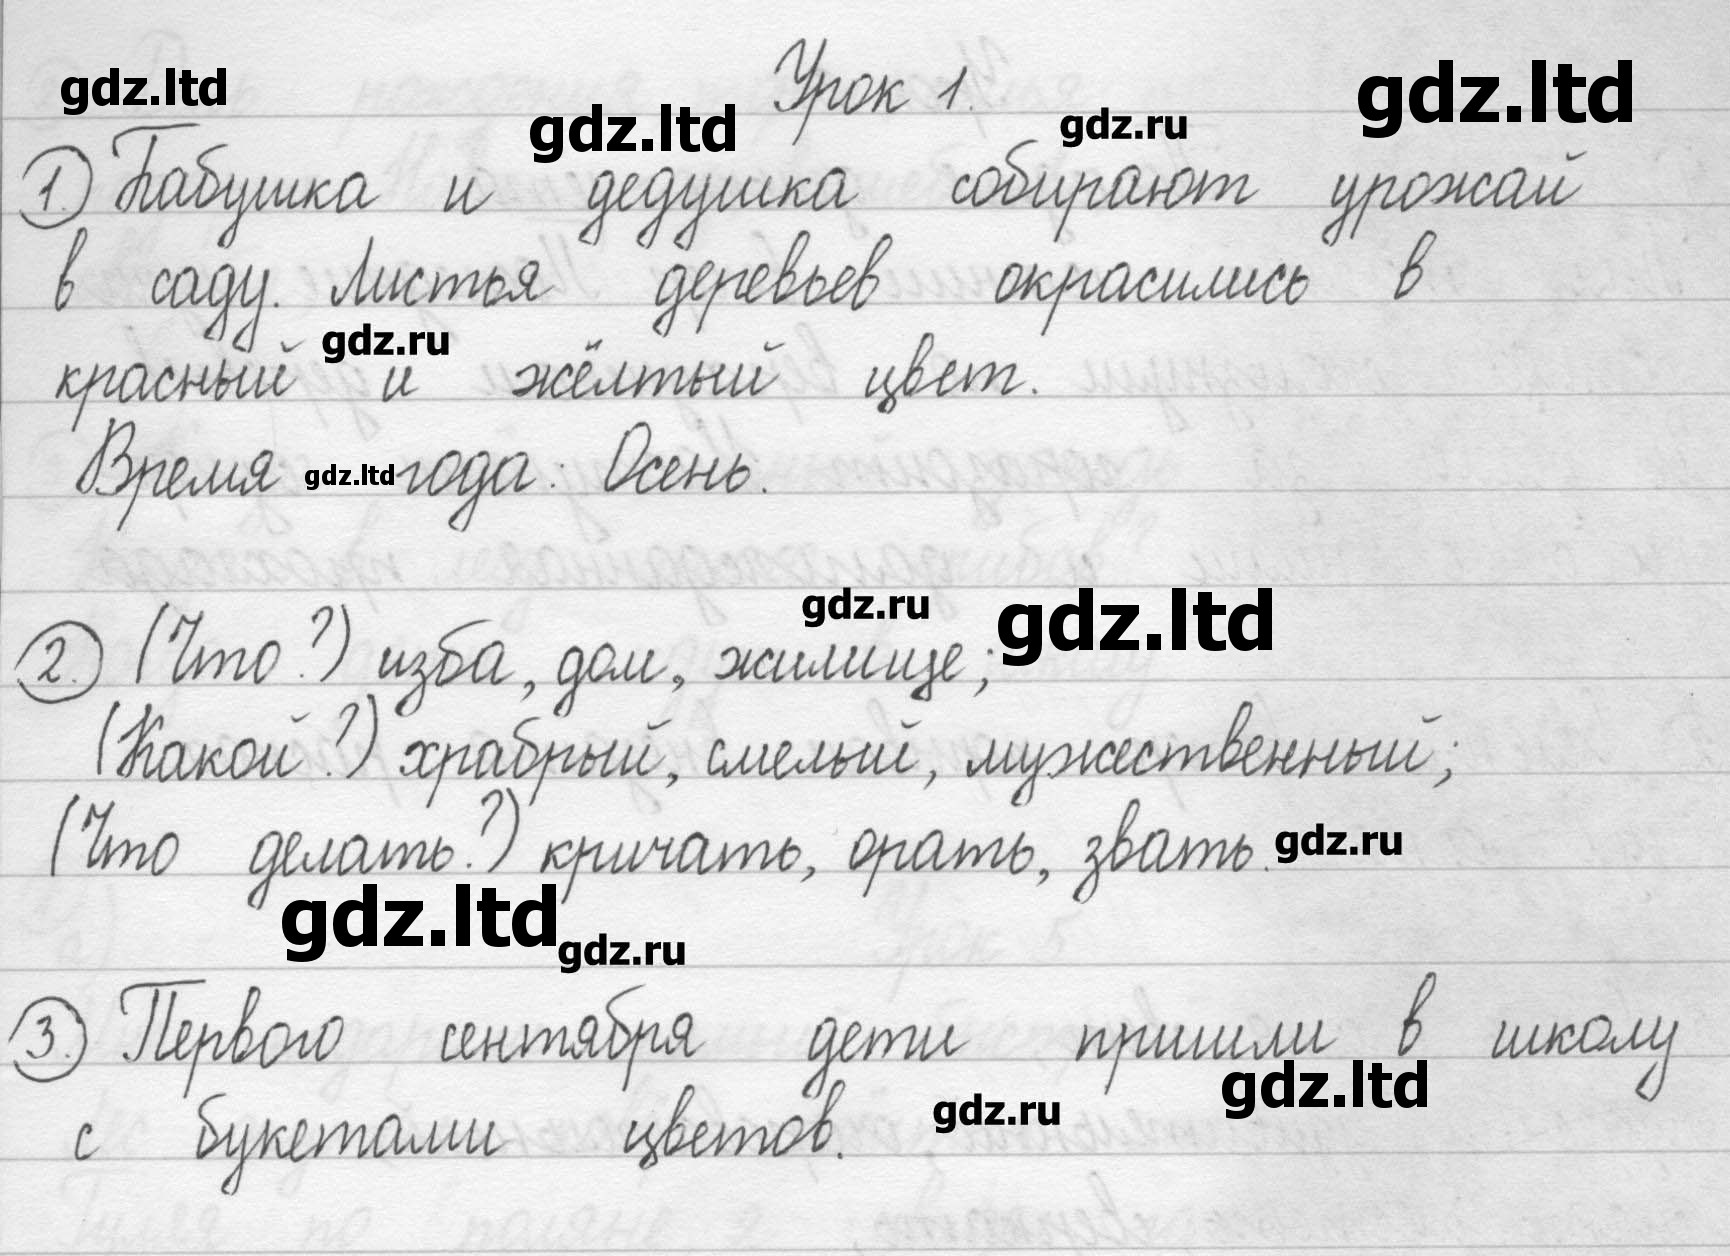 Урок 1.
gdz.ltd gdz.ltd gdz.ru gdz.ltd
1. Бабушка и дедушка собирают урожай
в саду. Листья деревьев окрасились в
gdz.ru
красный и жёлтый цвет.
Время gdz.ltd года: Осень.
gdz.ru gdz.ltd
2. (Что?) изба, дом, жилище;
(Какой?) храбрый, смелый, мужественный;
(Что делать?) кричать, орать, звать. gdz.ru
gdz.ltd gdz.ru
3. Первого сентября дети пришли в школу
gdz.ru gdz.ltd
с букетами цветов.